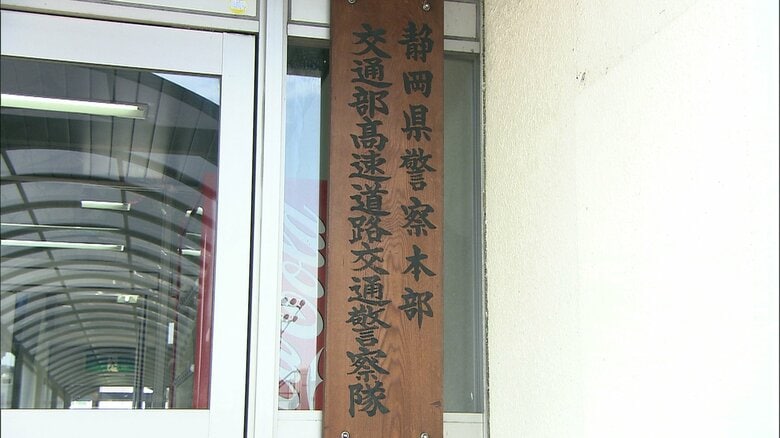 静岡県警察本部
交通部高速道路交通警察隊
Cola